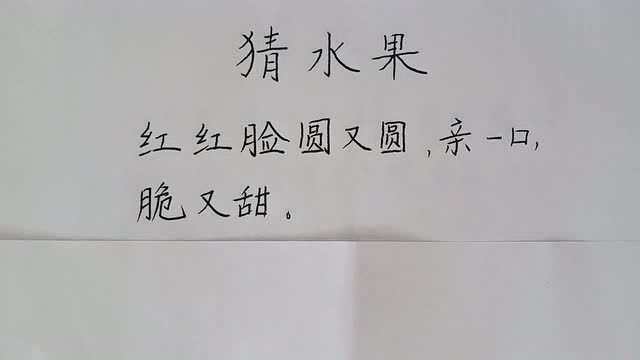 猜水果
红红脸圆又圆,亲一口,
脆又甜。